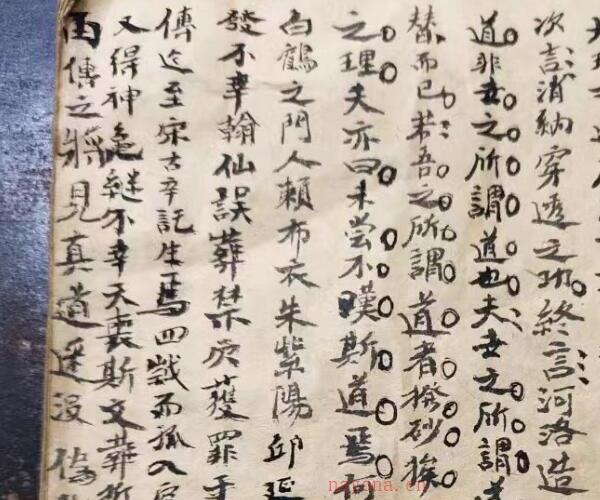 次言消納穿透之功終言河洛造
道非世之所謂道也夫世之所謂
替而已若吾之所謂道者撥砂挨
之理夫亦曰未嘗不嘆斯道焉
白鶴之門人賴布衣朱紫陽邱延
發不幸翰仙誤葬禁庾獲罪于
傳迄至宋古辛託生焉四歲而孤入
又得神龜継不幸天喪斯文葬
而傳之蔣見真道湮沒偽
nayona.cn